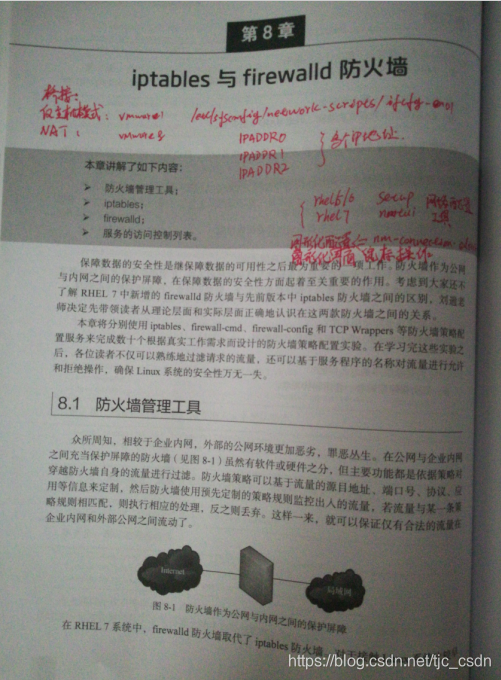 第8章
iptables 与 firewalld 防火墙
桥接：
仅主机模式： vmware1 /etc/sysconfig/network-scripts/ifcfg-eno1
NAT： vmware8 IPADDR0
IPADDR1
IPADDR2
多个IP地址
本章讲解了如下内容：
➢ 防火墙管理工具；
➢ iptables；
➢ firewalld；
➢ 服务的访问控制列表。
rhel5/6 setup
rhel7 nmtui
工具
保障数据的安全性是继保障数据的可用性之后最为重要的一项工作。防火墙作为公网
与内网之间的保护屏障，在保障数据的安全性方面起着至关重要的作用。考虑到大家还不
了解 RHEL 7 中新增的 firewalld 防火墙与先前版本中 iptables 防火墙之间的区别，刘遄老
师决定先带领读者从理论层面和实际层面正确地认识在这两款防火墙之间的关系。
本章将分别使用 iptables、firewall-cmd、firewall-config 和 TCP Wrappers 等防火墙策略配
置服务来完成数十个根据真实工作需求而设计的防火墙策略配置实验。在学习完这些实验之
后，各位读者不仅可以熟练地过滤请求的流量，还可以基于服务程序的名称对流量进行允许
和拒绝操作，确保 Linux 系统的安全性万无一失。
8.1 防火墙管理工具
众所周知，相较于企业内网，外部的公网环境更加恶劣，罪恶丛生。在公网与企业内网
之间充当保护屏障的防火墙（见图 8-1）虽然有软件或硬件之分，但主要功能都是依据策略对
穿越防火墙自身的流量进行过滤。防火墙策略可以基于流量的源目地址、端口号、协议、应
用等信息来定制，然后防火墙使用预先定制的策略规则监控出入的流量，若流量与某一条策
略规则相匹配，则执行相应的处理，反之则丢弃。这样一来，就可以保证仅有合法的流量在
企业内网和外部公网之间流动了。
Internet
局域网
图 8-1 防火墙作为公网与内网之间的保护屏障
在 RHEL 7 系统中，firewalld 防火墙取代了 iptables 防火墙。
https://blog.csdn.net/tjc_csdn